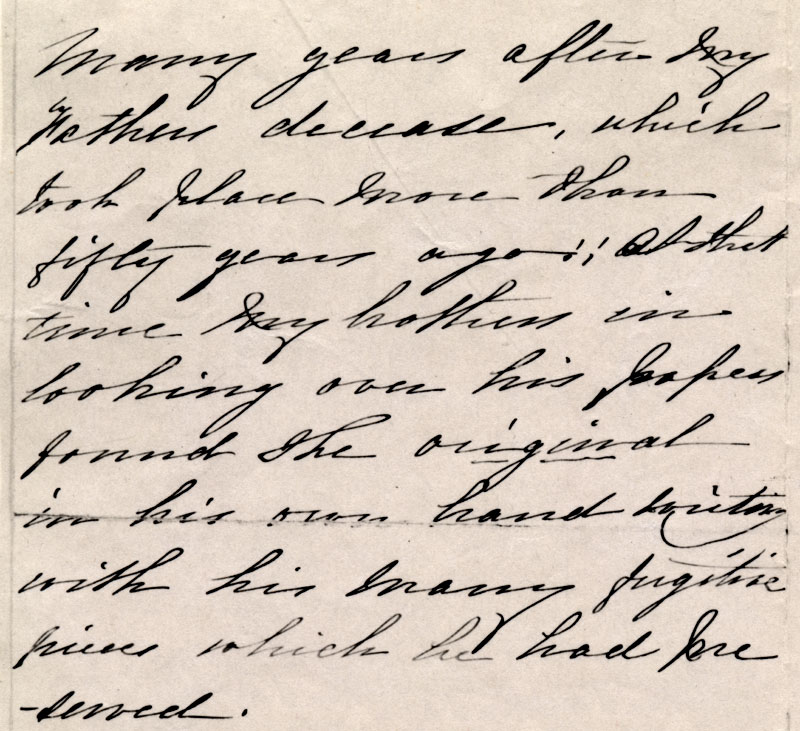 Many years after my
Fathers decease, which
took place more than
fifty years ago!! At that
time my brothers in
looking over his papers
found the original
in his own hand writing
with his many fugitive
pieces which he had pre
-served.